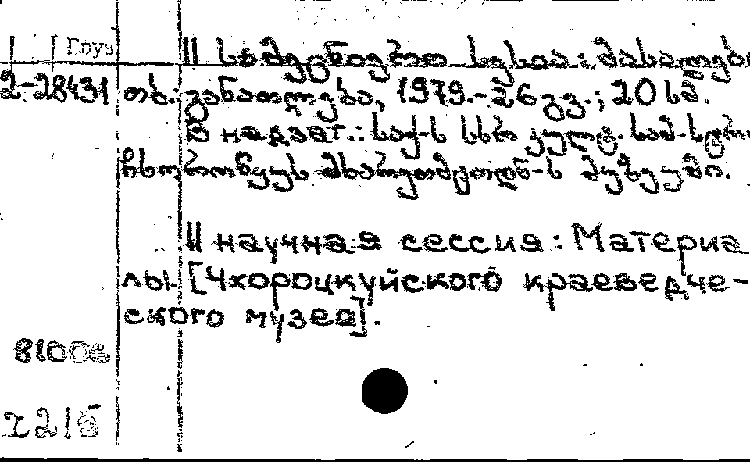 Груз
II სამეცნიერო სესია: მასალები
2-28431 თბ.: განათლება, 1979.-26 გვ.; 20 სმ.
В надзаг.: საქ-ს სსრ კულტ. სამ-სტრო
ჩხოროწყუს მხარეთმცოდნ-ს მუზეუმი.
II научная сессия: Материа
лы [Чхороцкуйского краеведче-
ского музея].